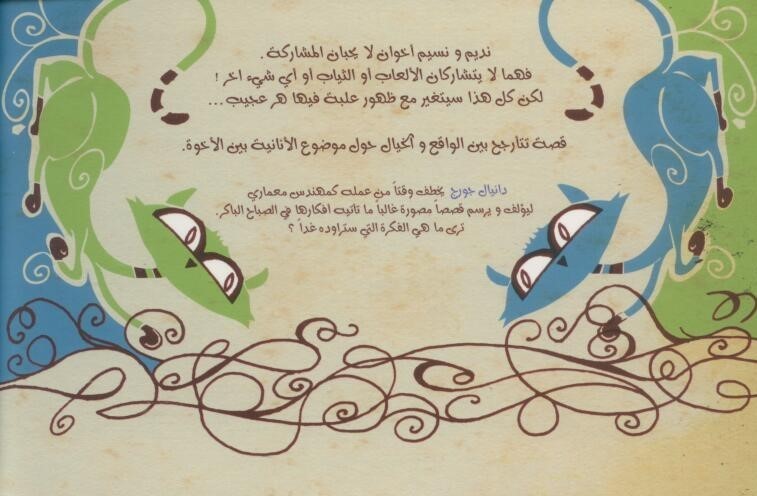 نديم و نسيم اخوان لا يحبان المشاركة .
فهما لا يتشاركان الألعاب او الثياب او أي شيء اخر !
لكن كل هذا سيتغير مع ظهور علبة فيها هر عجيب...
قصة تتأرجح بين الواقع و الخيال حول موضوع الأنانية بين الأخوة.
دانيال جورج يخطف وقتاً من عمله كمهندس معماري
ليؤلف و يرسم قصصاً مصورة غالباً ما تأتيه افكارها في الصباح الباكر.
ترى ما هي الفكرة التي ستراوده غداً ؟